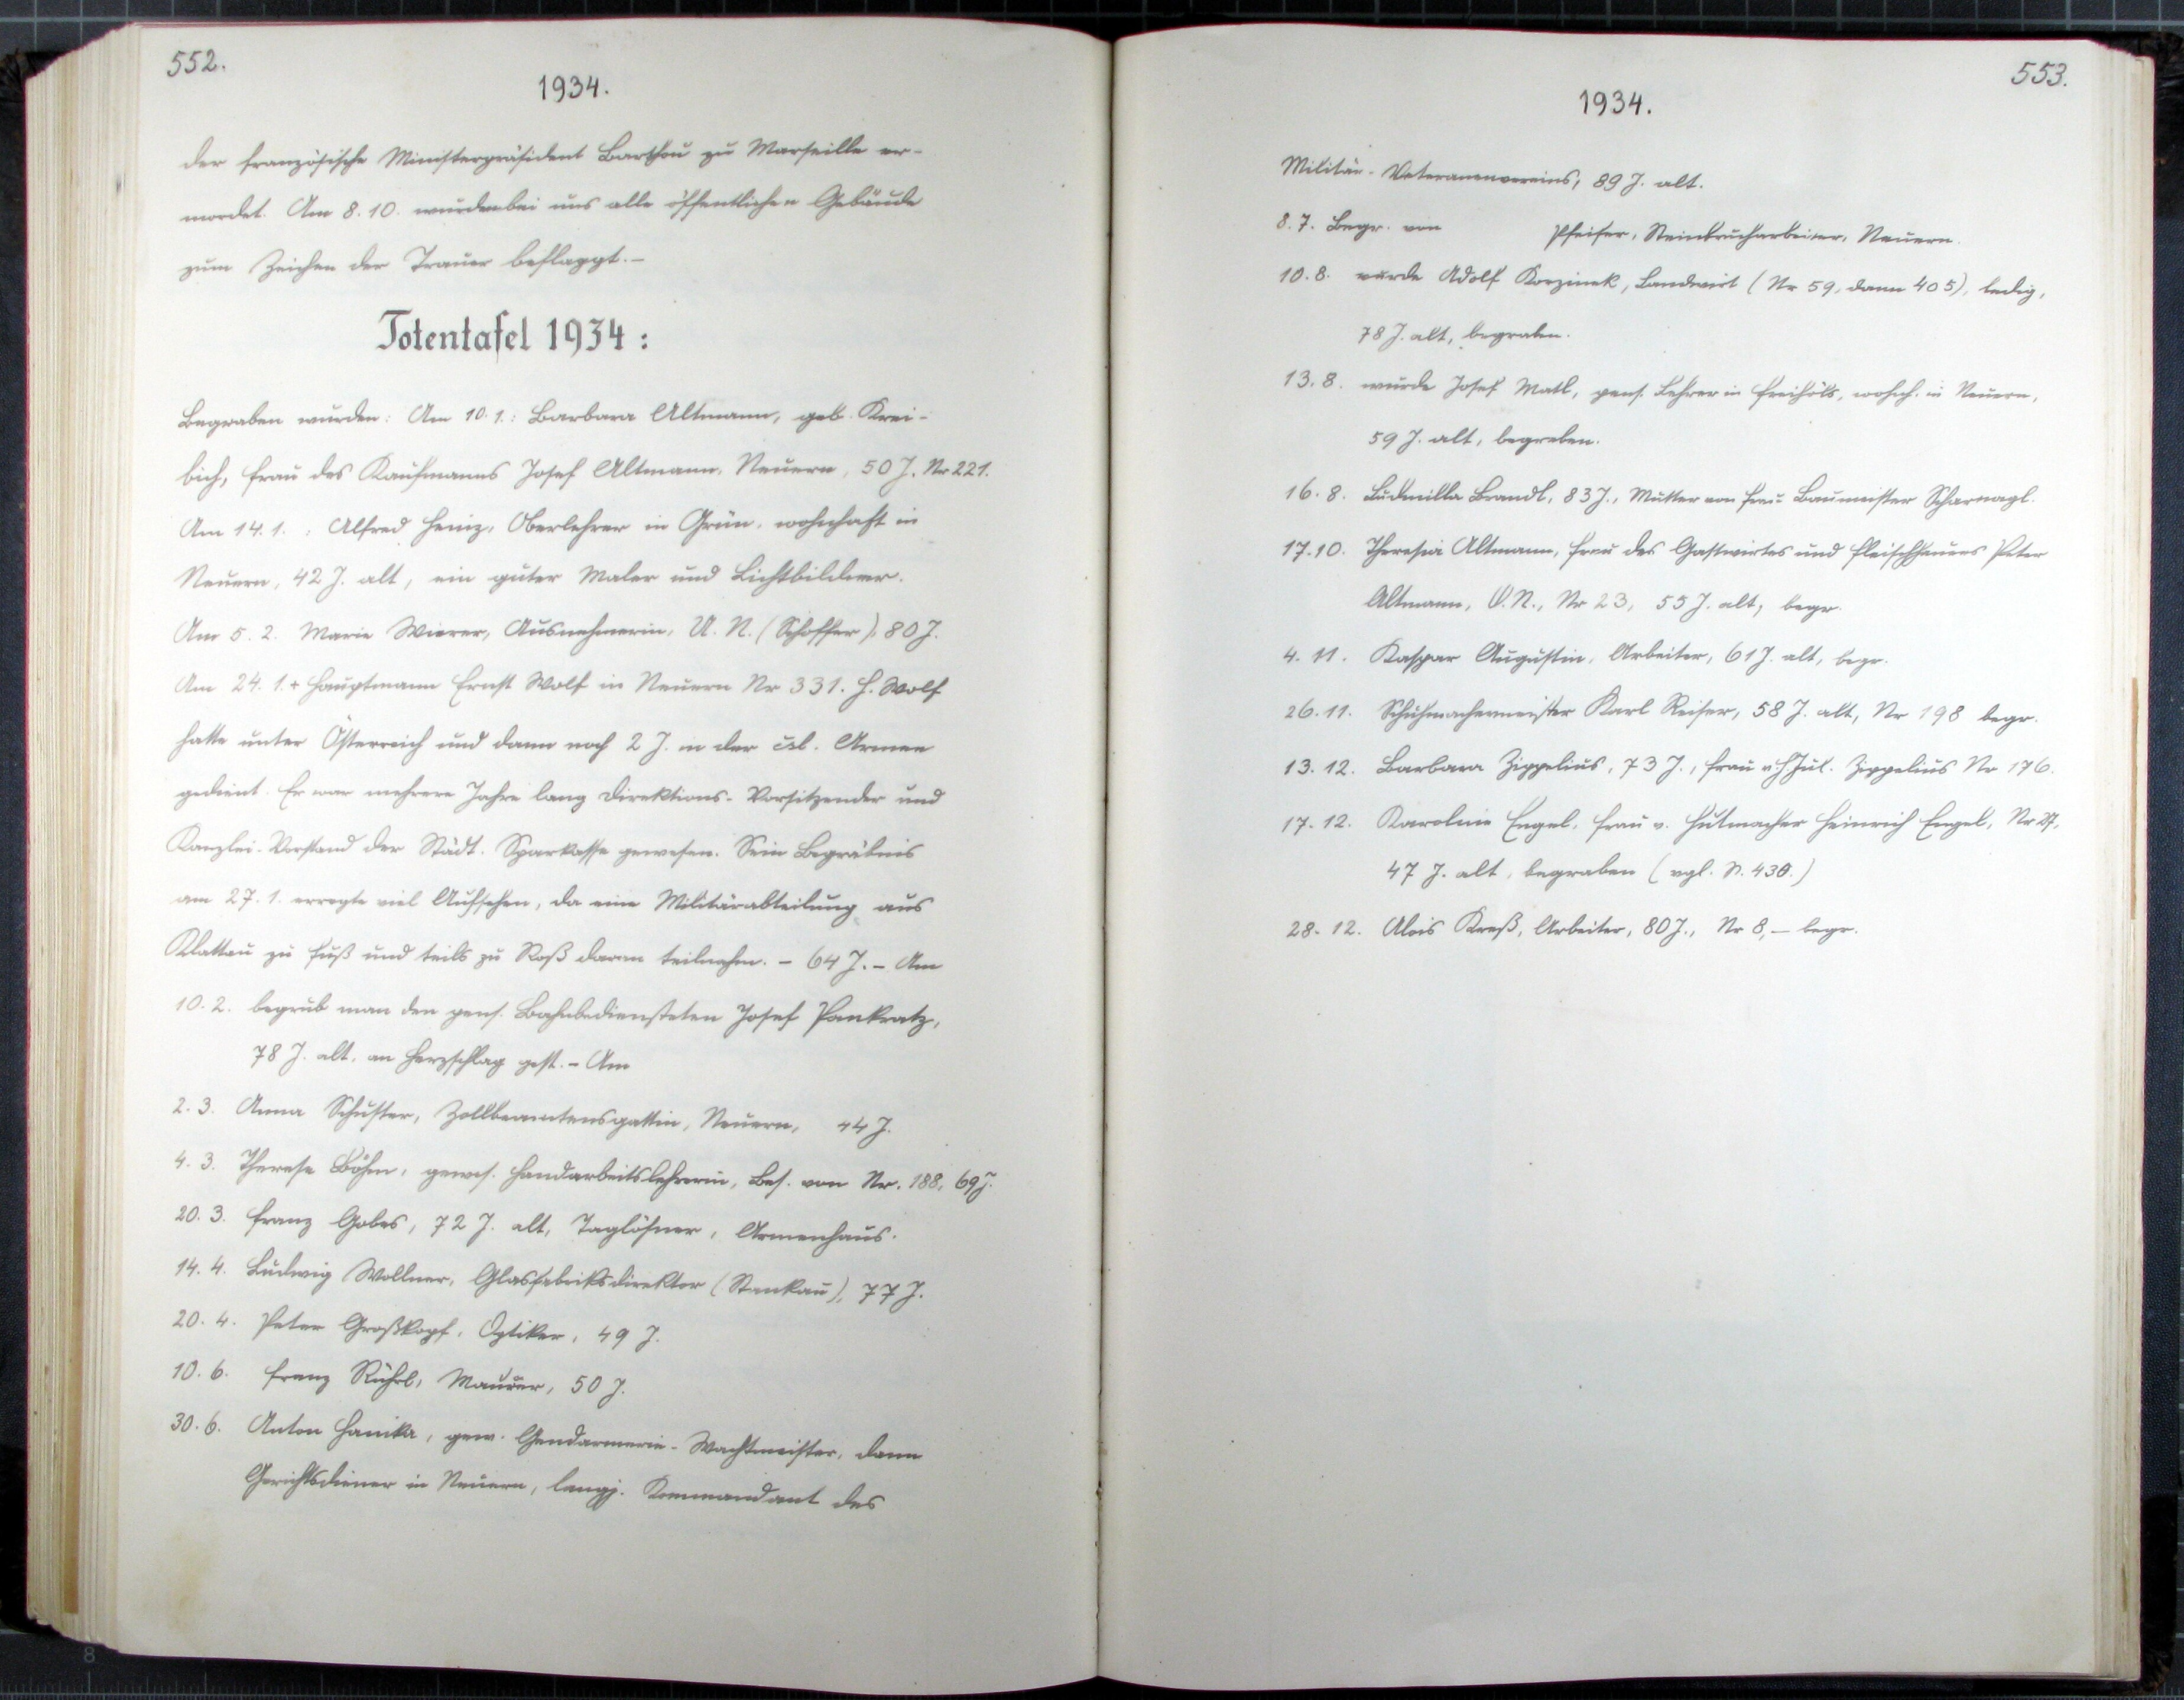 552.
1934.
der französische Ministerpräsident Barthou zu Marseille er-
mordet. Am 8. 10. wurden bei uns alle öffentlichen Gebäude
zum Zeichen der Trauer beflaggt. –
Totentafel 1934 :
Begraben wurden: Am 10. 1.: Barbara Altmann, geb. Krei-
bich, Frau des Kaufmanns Josef Altmann, Neuern, 50 J. Nr 221.
Am 14. 1. : Alfred Heinz, Oberlehrer in Grün, wohnhaft in
Neuern, 42 J. alt, ein guter Maler und Lichtbildner.
Am 5. 2. Marie Wierer, Ausnehmerin, U. N. (Schoffer), 80 J.
Am 24. 1. + Hauptmann Ernst Wolf in Neuern Nr 331. H. Wolf
hatte unter Österreich und dann noch 2 J. in der čsl. Armee
gedient. Er war mehrere Jahre lang Direktions-Vorsitzender und
Kanzlei-Vorstand der Städt. Sparkasse gewesen. Sein Begräbnis
am 27. 1. erregte viel Aufsehen, da eine Militärabteilung aus
Klattau zu Fuß und teils zu Roß daran teilnahm. – 64 J. – Am
10. 2. begrub man den pens. Bahnbediensteten Josef Pankratz,
78 J. alt, an Herzschlag gest. – Am
2. 3. Anna Schuster, Zollbeamtensgattin, Neuern, 44 J.
4. 3. Therese Böhm, gewes. Handarbeitslehrerin, Bes. von Nr. 188, 69 J.
20. 3. Franz Gobes, 72 J. alt, Taglöhner, Armenhaus.
14. 4. Ludwig Wollner, Glasfabriksdirektor (Stankau), 77 J.
20. 4. Peter Großkopf, Optiker, 49 J.
10. 6. Franz Rührl, Maurer, 50 J.
30. 6. Anton Hanika, gew. Gendarmerie-Wachtmeister, dann
Gerichtsdiener in Neuern, langj. Kommandant des
553.
1934.
Militär-Veteranenvereins, 89 J. alt.
8. 7. Begr. von Pfeifer, Steinbrucharbeiter, Neuern.
10. 8. wurde Adolf Korzinek, Landwirt (Nr 59, dann 405), ledig,
78 J. alt, begraben.
13. 8. wurde Josef Matl, pens. Lehrer in Freihöls, wohnh. in Neuern,
59 J. alt, begraben.
16. 8. Ludmilla Brandl, 83 J., Mutter von Frau Baumeister Scharnagl.
17. 10. Theresia Altmann, Frau des Gastwirtes und Fleischhauers Peter
Altmann, O. N., Nr 23, 55 J. alt, begr.
4. 11. Kaspar Augustin, Arbeiter, 61 J. alt, begr.
26. 11. Schuhmachermeister Karl Reiser, 58 J. alt, Nr 198 begr.
13. 12. Barbara Zippelius, 73 J., Frau v. H. Jul. Zippelius Nr 176.
17. 12. Karoline Engel, Frau v. Hutmacher Heinrich Engel, Nr 27,
47 J. alt, begraben (vgl. S. 430.)
28. 12. Alois Kreß, Arbeiter, 80 J., Nr 8, – begr.